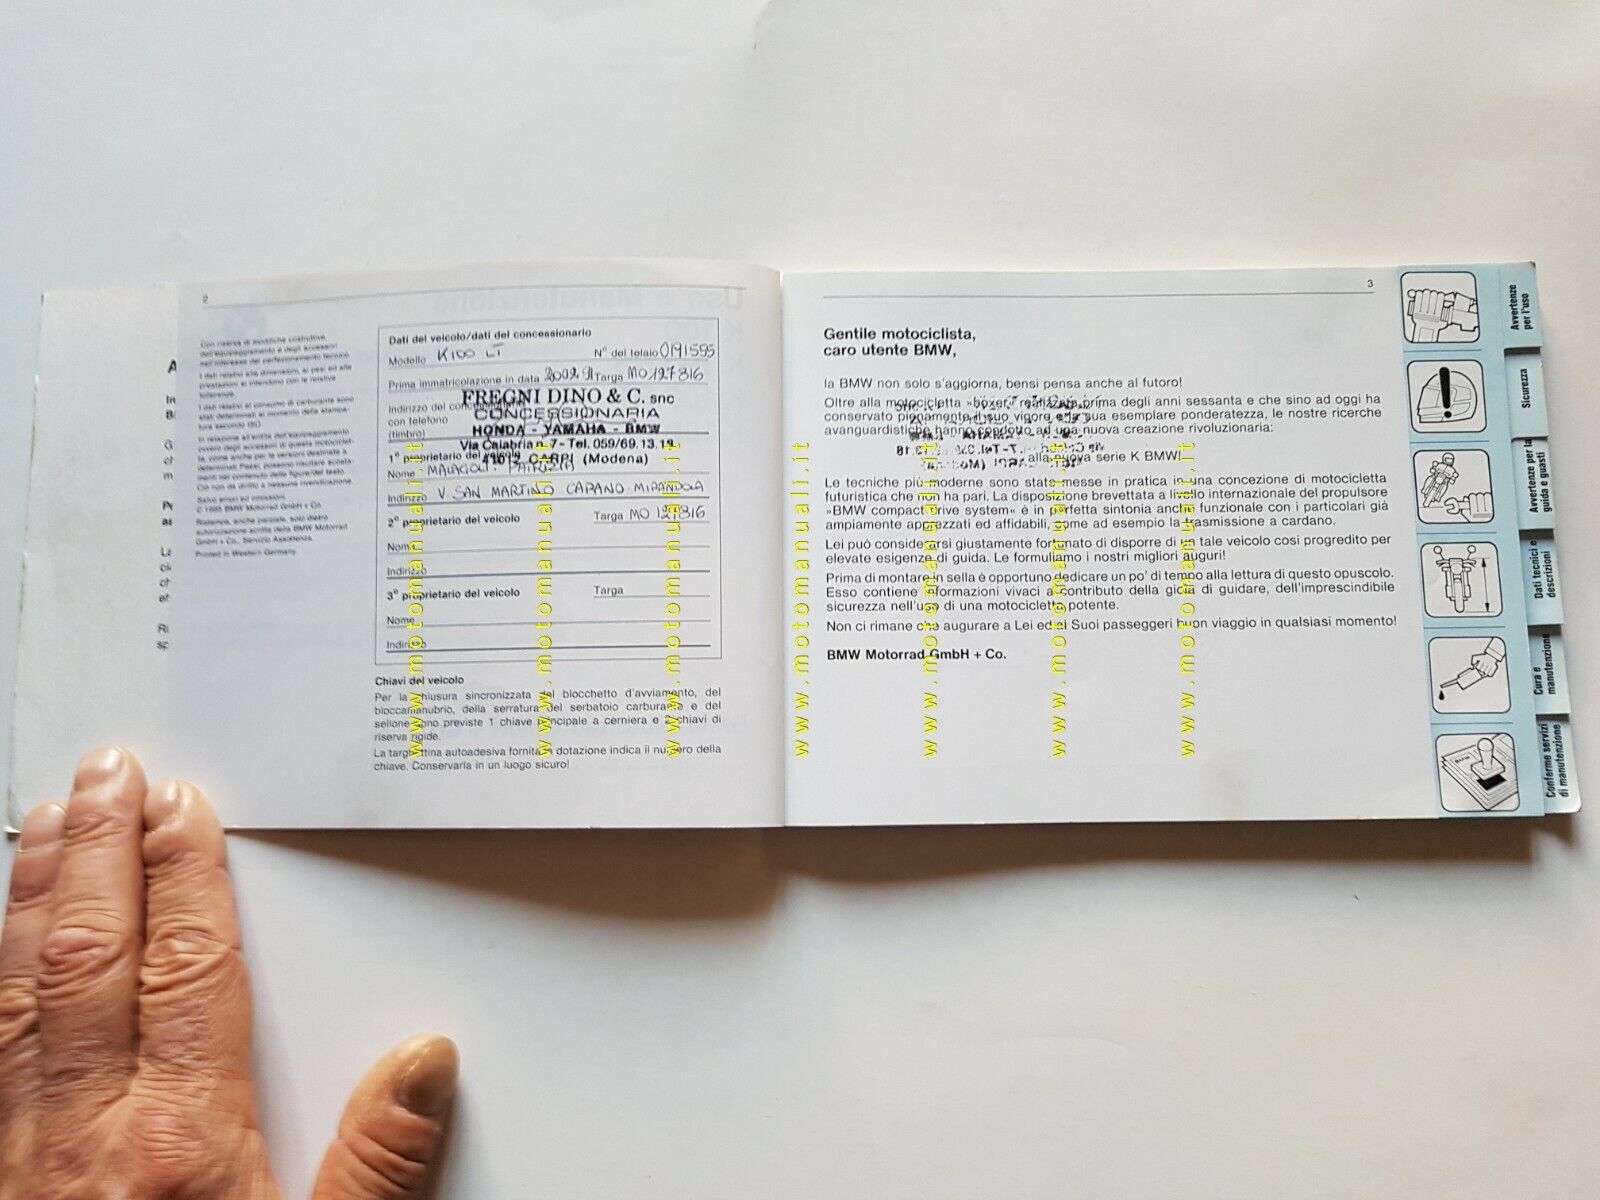 2
Con riserva di modifiche costruttive,
dell'equipaggiamento e degli accessori
nell'interesse del perfezionamento tecnico.
I dati relativi alle dimensioni, ai pesi ed alle
prestazioni si intendono con le relative
tolleranze.
I dati relativi al consumo di carburante sono
stati determinati al momento della stampa-
tura secondo ISO.
In relazione all'entità dell'equipaggiamento
ovvero degli accessori di questa motociclet-
ta, come anche per le versioni destinate a
determinati Paesi, possono risultare scosta-
menti nel contenuto delle figure/del testo.
Ciò non dà diritto a nessuna rivendicazione.
Salvo errori ed omissioni.
BMW Motorrad GmbH + Co.
Ristampa, anche parziale, solo dietro
autorizzazione scritta della BMW Motorrad
GmbH + Co., Servizio Assistenza.
Printed in Western Germany
Dati del veicolo/dati del concessionario
Modello K100 LT N° del telaio 0191555
Prima immatricolazione in data Targa MO 127816
Indirizzo del
con telefono
(timbro)
FREGNI DINO & C. snc
CONCESSIONARIA
HONDA - YAMAHA - BMW
Via Calabria n. 7 - Tel. 059/69.13.19
41012 CARPI (Modena)
1° proprietario del veicolo
Nome MALAGOLI
Indirizzo V. SAN MARTINO CARANO MIRANDOLA
2° proprietario del veicolo Targa MO 127816
Nome
Indirizzo
3° proprietario del veicolo Targa
Nome
Indirizzo
Chiavi del veicolo
Per la chiusura sincronizzata del blocchetto d'avviamento, del
bloccamanubrio, della serratura del serbatoio carburante e del
sellone sono previste 1 chiave principale a cerniera e 2 chiavi di
riserva rigide.
La targhettina autoadesiva fornita in dotazione indica il numero della
chiave. Conservarla in un luogo sicuro!
3
Gentile motociclista,
caro utente BMW,
la BMW non solo s'aggiorna, bensì pensa anche al futoro!
Oltre alla motocicletta »boxer« realizzata prima degli anni sessanta e che sino ad oggi ha
conservato pienamente il suo vigore e la sua esemplare ponderatezza, le nostre ricerche
avanguardistiche hanno condotto ad una nuova creazione rivoluzionaria:
alla nuova serie K BMW!
Le tecniche più moderne sono state messe in pratica in una concezione di motocicletta
futuristica che non ha pari. La disposizione brevettata a livello internazionale del propulsore
»BMW compact drive system« è in perfetta sintonia anche funzionale con i particolari già
ampiamente apprezzati ed affidabili, come ad esempio la trasmissione a cardano.
Lei può considerarsi giustamente fortunato di disporre di un tale veicolo così progredito per
elevate esigenze di guida. Le formuliamo i nostri migliori auguri!
Prima di montare in sella è opportuno dedicare un po' di tempo alla lettura di questo opuscolo.
Esso contiene informazioni vivaci a contributo della gioia di guidare, dell'imprescindibile
sicurezza nell'uso di una motocicletta potente.
Non ci rimane che augurare a Lei ed ai Suoi passeggeri buon viaggio in qualsiasi momento!
BMW Motorrad GmbH + Co.
Avvertenze
per l'uso
Sicurezza
Avvertenze per la
guida e guasti
Dati tecnici e
descrizioni
Cura e
manutenzione
Conferme servizi
di manutenzione
www.motomanuali.it
www.motomanuali.it
www.motomanuali.it
www.motomanuali.it
www.motomanuali.it
www.motomanuali.it
www.motomanuali.it